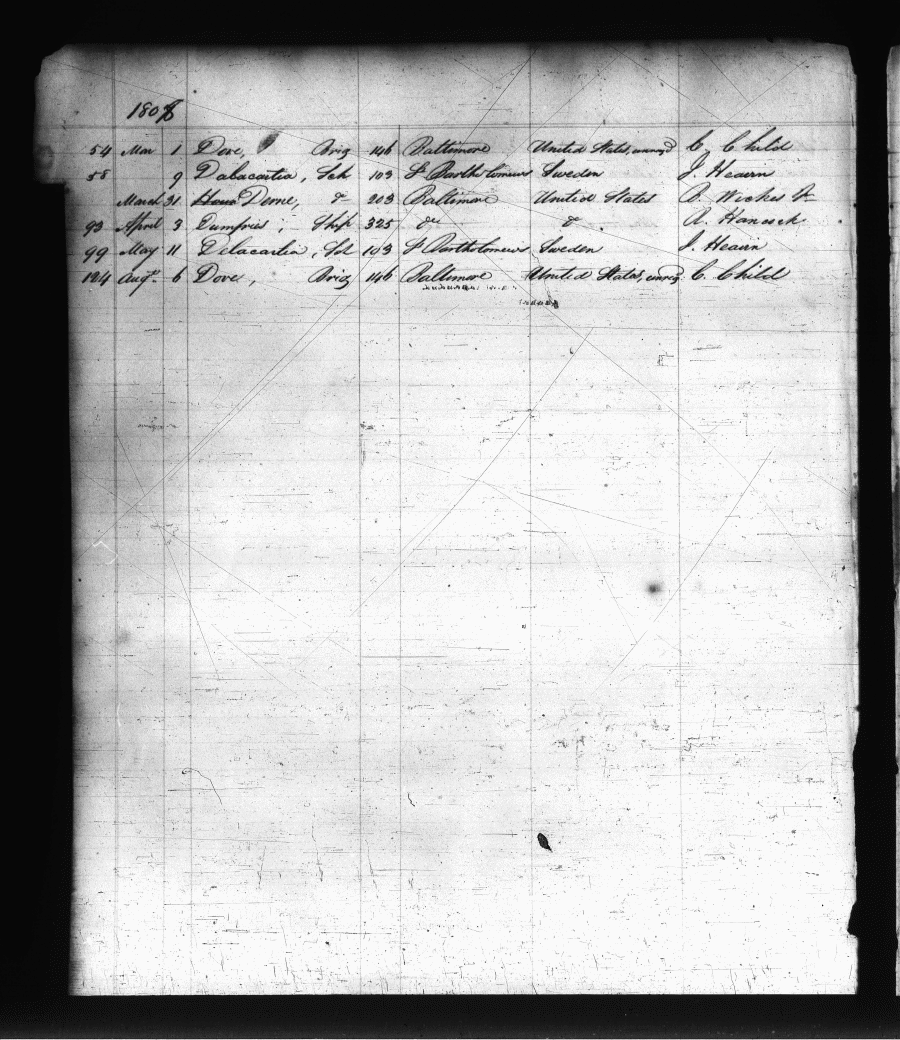 1808
54 Mar 1 Dove, Brig 146 Baltimore United States, unreg'd C. Child
58 9 Dalacartia, Sch 103 St Bartholomews Sweden J. Hearn
March 31 Derne, do 203 Baltimore United States B. Wickes Jr
93 April 3 Dumfries, Ship 325 do do A. Hancock
99 May 11 Delacartia, Sch 103 St Bartholomews Sweden J. Hearn
124 Augt. 6 Dove, Brig 146 Baltimore United States, unreg. C. Child